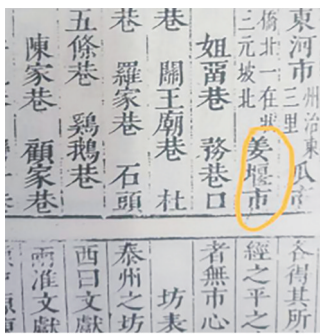 東河市 州治東三里 瓜市
三元坡北 姜堰市
務巷口
巷 關王廟巷 杜
巷 羅家巷 石頭
五條巷 鷄鵝巷
陳家巷 顧家巷
各得其所
經之平之
者無市心
坊表
泰州之坊
西曰文獻
兩淮文獻